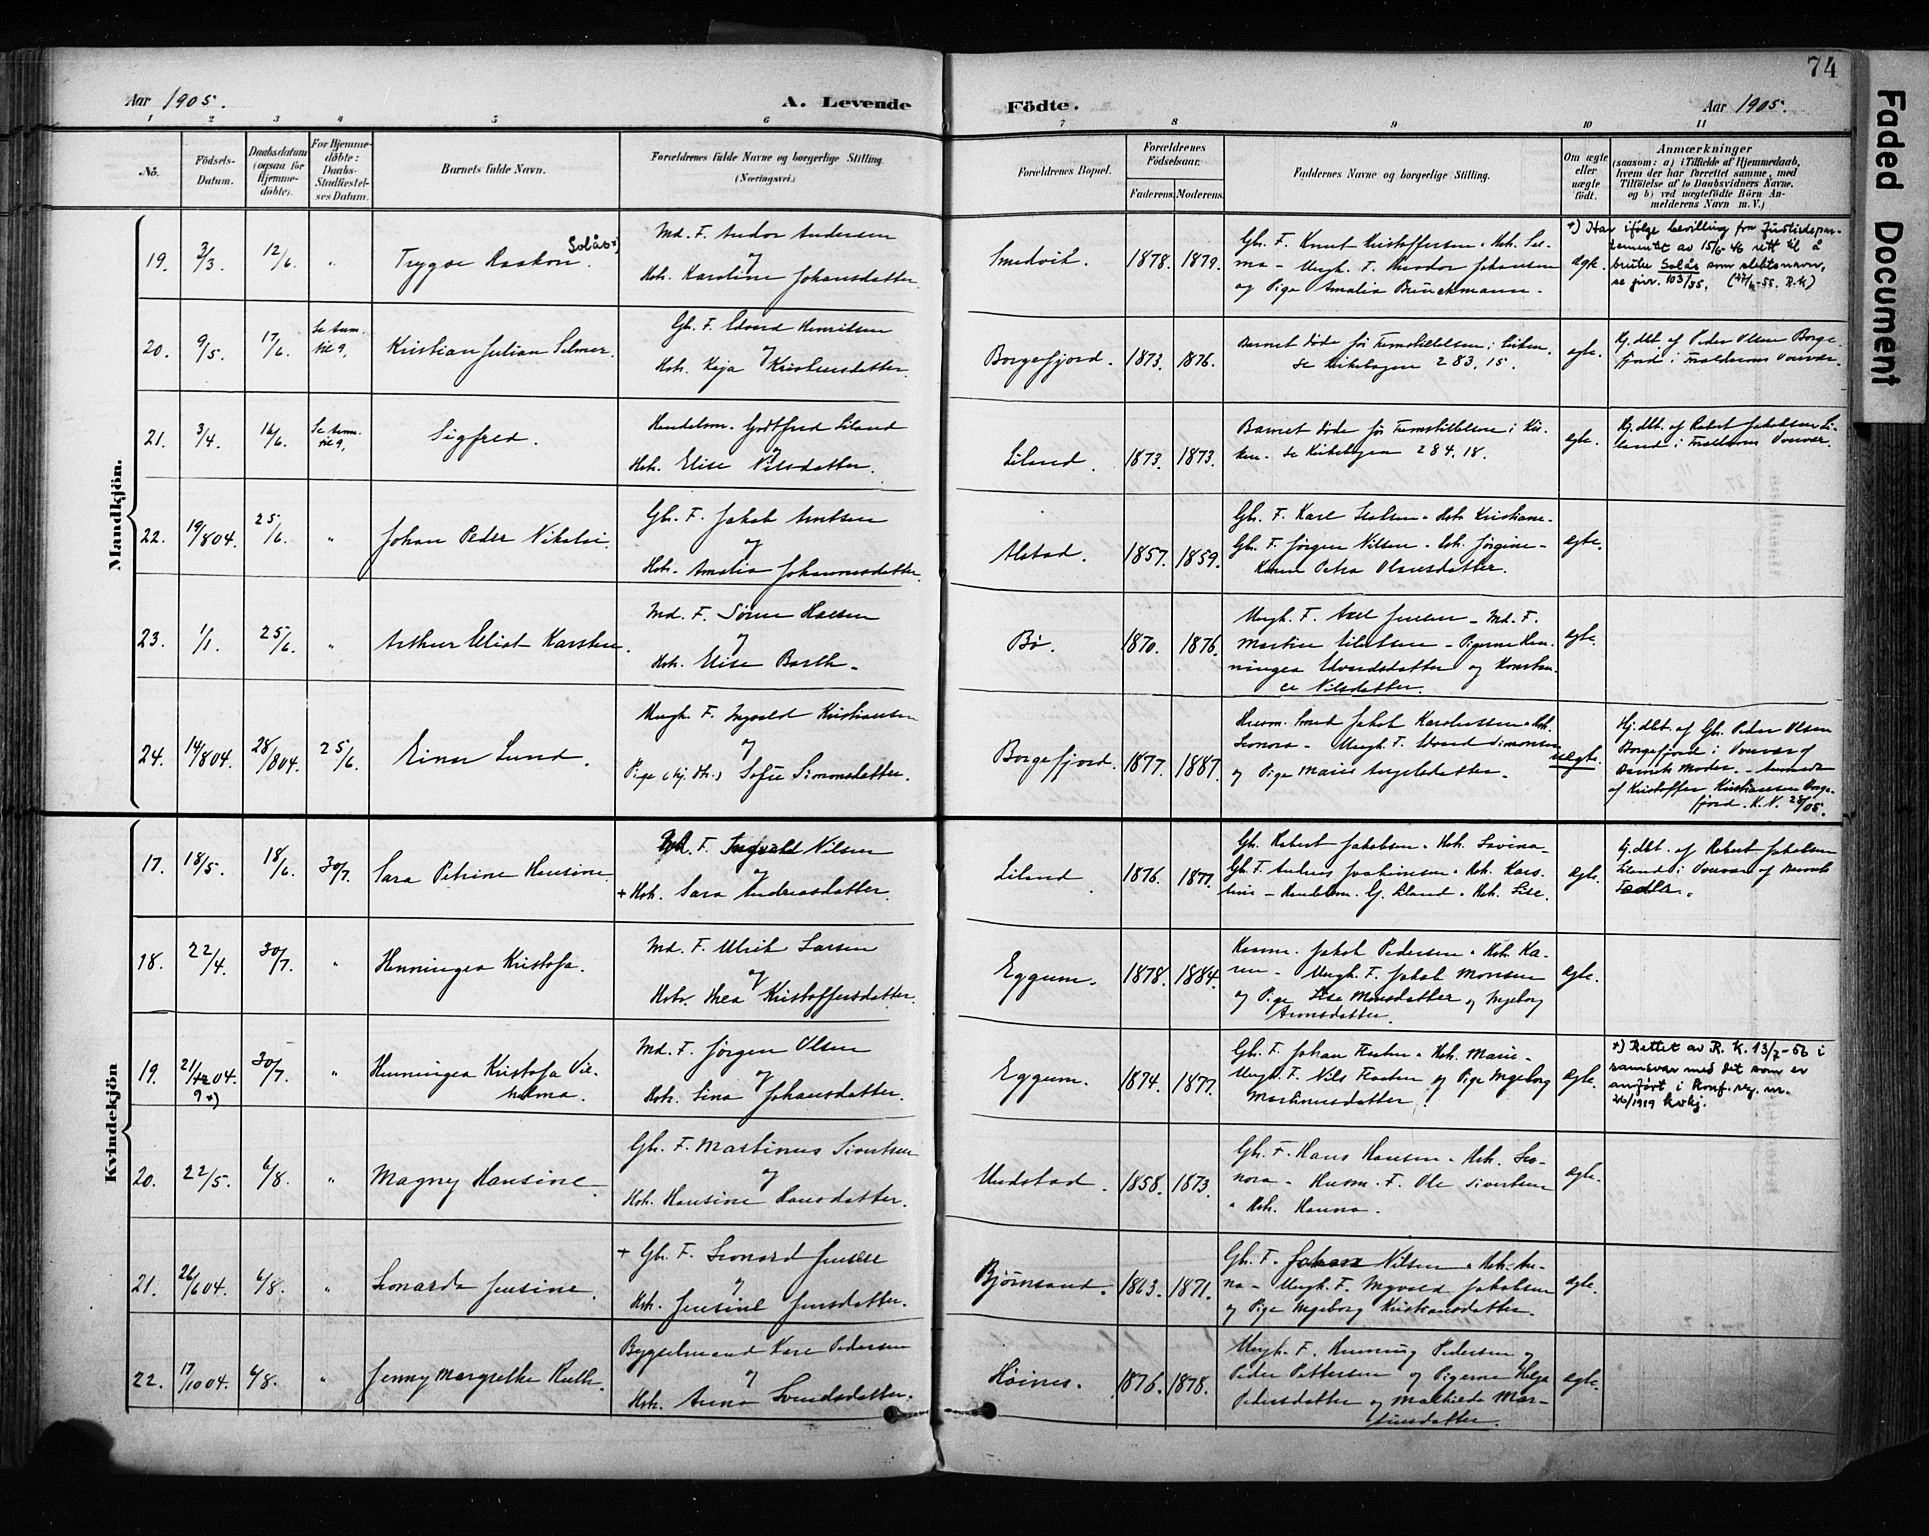 74
Faded Document
Aar 1905.
A. Levende
Födte.
Aar 1905.
1 2 3 4 5 6 7 8 9 10 11
No.
Födsels-
Datum.
Daabsdatum
(ogsaa for
Hjemme-
döbte).
For Hjemme-
döbte:
Daabs-
Stadfæstel-
ses Datum.
Barnets fulde Navn.
Forældrenes fulde Navne og borgerlige Stilling.
(Næringsvei.)
Forældrenes Bopæl.
Forældrenes
Födselsaar.
Faderens.
Moderens.
Faddernes Navne og borgerlige Stilling.
Om ægte
eller
uægte
født.
Anmærkninger
(saasom: a) i Tilfælde af Hjemmedaab,
hvem der har forrettet samme, med
Tilföielse af to Daabsvidners Navne,
og b) ved uægtefödte Börn An-
melderens Navn m. V.)
Mandkjön.
19. 3/3. 12/6. " Trygve Haakon Solås x)
Md. F. Andor Andersen
og
Hst. Karoline Johansdatter.
Smedvik. 1878. 1879.
Gb. F. Knut Kristoffersen
og Pige Amalia Brinckmann.
ægte.
x) Har ifølge bevilling fra Justisdepar-
tementet av 15/5 46 rett til å
bruke Solås som slektsnavn,
se jnr. 103/55.
20. 9/5. 17/6. Se Anm. til 9. Kristian Julian Selmer.
Gb. F. Edvard Henriksen
og
Hst. Kaja Kristensdatter.
Borgefjord. 1873. 1876.
Barnet døde før Fremstillelsen i Kirken.
Se Kirkebogen 283. 15.
ægte.
Hj.dbt. af Peder Olsen Borge-
fjord i Forældrenes Nærvær.
21. 3/4. 16/6. Se Anm. til 9. Sigfred.
Handelsm. Godtfred Liland
og
Hst. Elise Nilsdatter.
Liland. 1873. 1873.
Barnet døde før Fremstillelsen i Kir-
ken. Se Kirkebogen 284. 18.
ægte.
Hj.dbt. af Robert Jakobsen Li-
land i Forældrenes Nærvær.
22. 19/8 04. 25/6. " Johan Peder Nikolai.
Gb. F. Jakob Arntsen
og
Hst. Amalia Johannesdatter.
Alstad. 1857. 1859.
Gb. F. Karl Hst. Kristiane.
Gb. F. Jørgen Nilsen. Hst. Jørgine
Petra Olausdatter.
ægte.
23. 1/1. 25/6. " Arthur Eliot Karsten.
Md. F. Søren Hansen
og
Hst. Elise Barth.
Bø. 1870. 1876.
Ungk. F. Axel Jensen. Md. F.
Martin Pigerne Hen-
ningea Edvardsdatter og Konstan-
ce Nilsdatter.
ægte.
24. 14/8 04. 28/8 04. 25/6. Einar Lund.
Ungk. F. Ingvald Kristiansen
og
Pige Sofie Simonsdatter.
Borgefjord. 1877. 1887.
Husm. Smed Jakob
Leonora. Ungk. F. Edvard Simonsen
og Pige Marie Angelsdatter.
uægte.
Hj.dbt. af Gb. Peder Olsen
Borgefjord i Nærvær af
Barnets Moder. Anmeldt
af Kristoffer Kristiansen Borge-
fjord. K.N. 28/05.
Kvindekjön
17. 18/5. 18/6. 30/7. Sara Petrine Hansine.
Gb. F. Ingvald Nilsen
og
+ Hst. Sara Andreasdatter.
Liland. 1876. 1877.
Gb. Robert Jakobsen. Hst. Lovina.
Gb. F. Anders Joakimsen. Hst.
Handelsm. G. Liland. Hst. Lise.
ægte.
Hj.dbt. af Robert Jakobsen
Liland i Nærvær af Barnets
Fader.
18. 22/4. 30/7. " Henningea Kristofa.
Md. F. Ulrik Larsen
og
Hst. Thea Kristoffersdatter.
Eggum. 1878. 1884.
Jakob Pedersen. Hst. Ka-
ren. Ungk. F. Jakob Monsen
og Pige Lise Monsdatter og Ingeborg
Aronsdatter.
ægte.
19. 21/12 04. 9 x) 30/7. " Henningea Kristofa Vil-
helma.
Md. F. Jørgen Olsen
og
Hst. Lina Johansdatter.
Eggum. 1874. 1877.
Gb. F. Johan Hst. Marie.
Ungk. F. Nils og Pige Ingeborg
Martinusdatter.
ægte.
x) Rettet av R. K. 13/7-56 i
samsvar med det som er
anført i Konf.reg. nr.
26/1919 kvkj.
20. 22/5. 6/8. " Magny Hansine.
Gb. F. Martinus Sivertsen
og
Hst. Hansine Hansdatter.
Unstad. 1858. 1873.
Gb. F. Hans Hansen. Hst. Leo-
nora. Husm. F. Ole Sivertsen
" Hst. Hanna.
ægte.
21. 26/6 04. 6/8. " Leonarda Jensine.
+ Gb. F. Leonard Jensen
og
Hst. Jensine Jensdatter.
Bjørnsand. 1863. 1871.
Gb. F. Johan Nilsen. Hst. An-
na. Ungk. F. Ingvald Jakobsen
og Pige Ingeborg Kristiansdatter.
ægte.
22. 17/10 04. 6/8. " Jenny Margrethe Ruth.
Bygselmand Kare Pedersen
og
Hst. Anna Svendsdatter.
Høines. 1876. 1878.
Ungk. F. Henning Pedersen og
Peder Pettersen og Pigerne Helga
Pedersdatter og Mathilde Mar-
tinsdatter.
ægte.